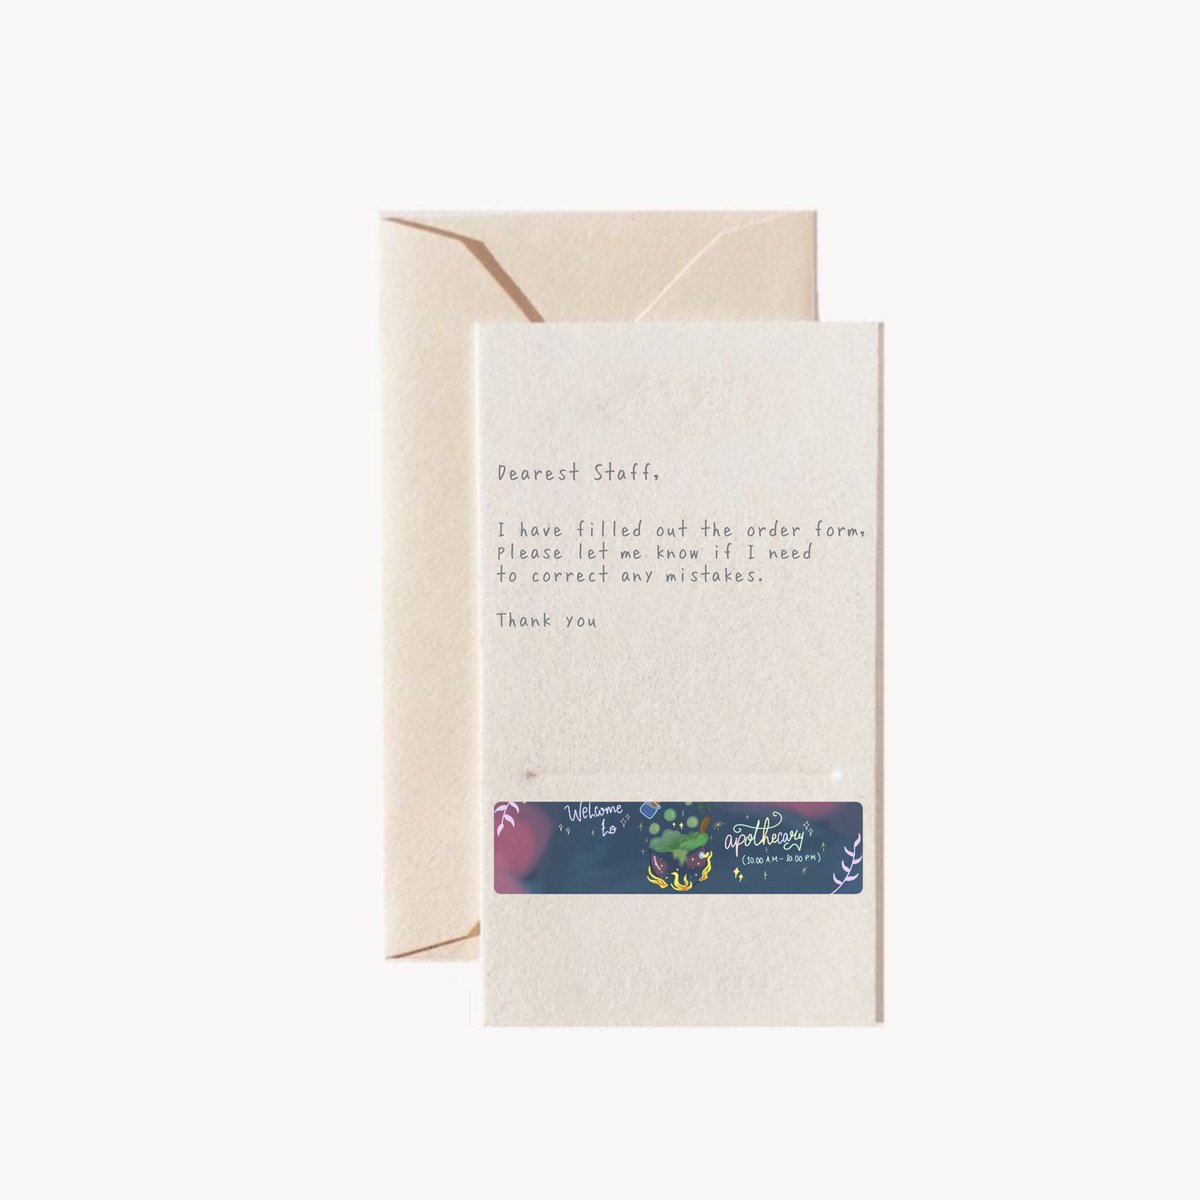 Dearest Staff,
I have filled out the order form,
please let me know if I need
to correct any mistakes.
Thank you
Welcome
to
apothecary
(10.00 A.M - 10.00 P.M)